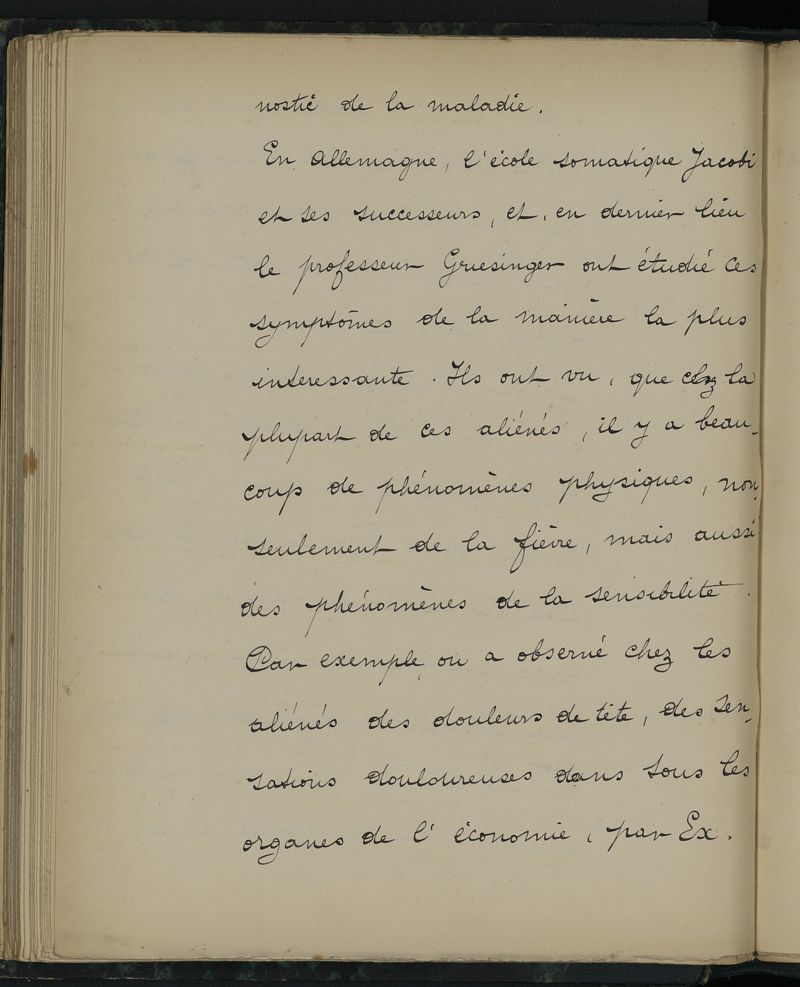 nostic de la maladie.
En Allemagne, l'école somatique Jacobi
et ses successeurs, et, en dernier lieu
le professeur Griesinger ont étudié ces
symptômes de la manière la plus
interessante. Ils ont vu, que chez la
plupart de ces aliénés, il y a beau-
coup de phénomènes physiques, non-
seulement de la fièvre, mais aussi
des phénomènes de la sensibilité.
Par exemple, on a observé chez les
aliénés des douleurs de tête, des sen-
sations douloureuses dans tous les
organes de l'économie, par Ex.